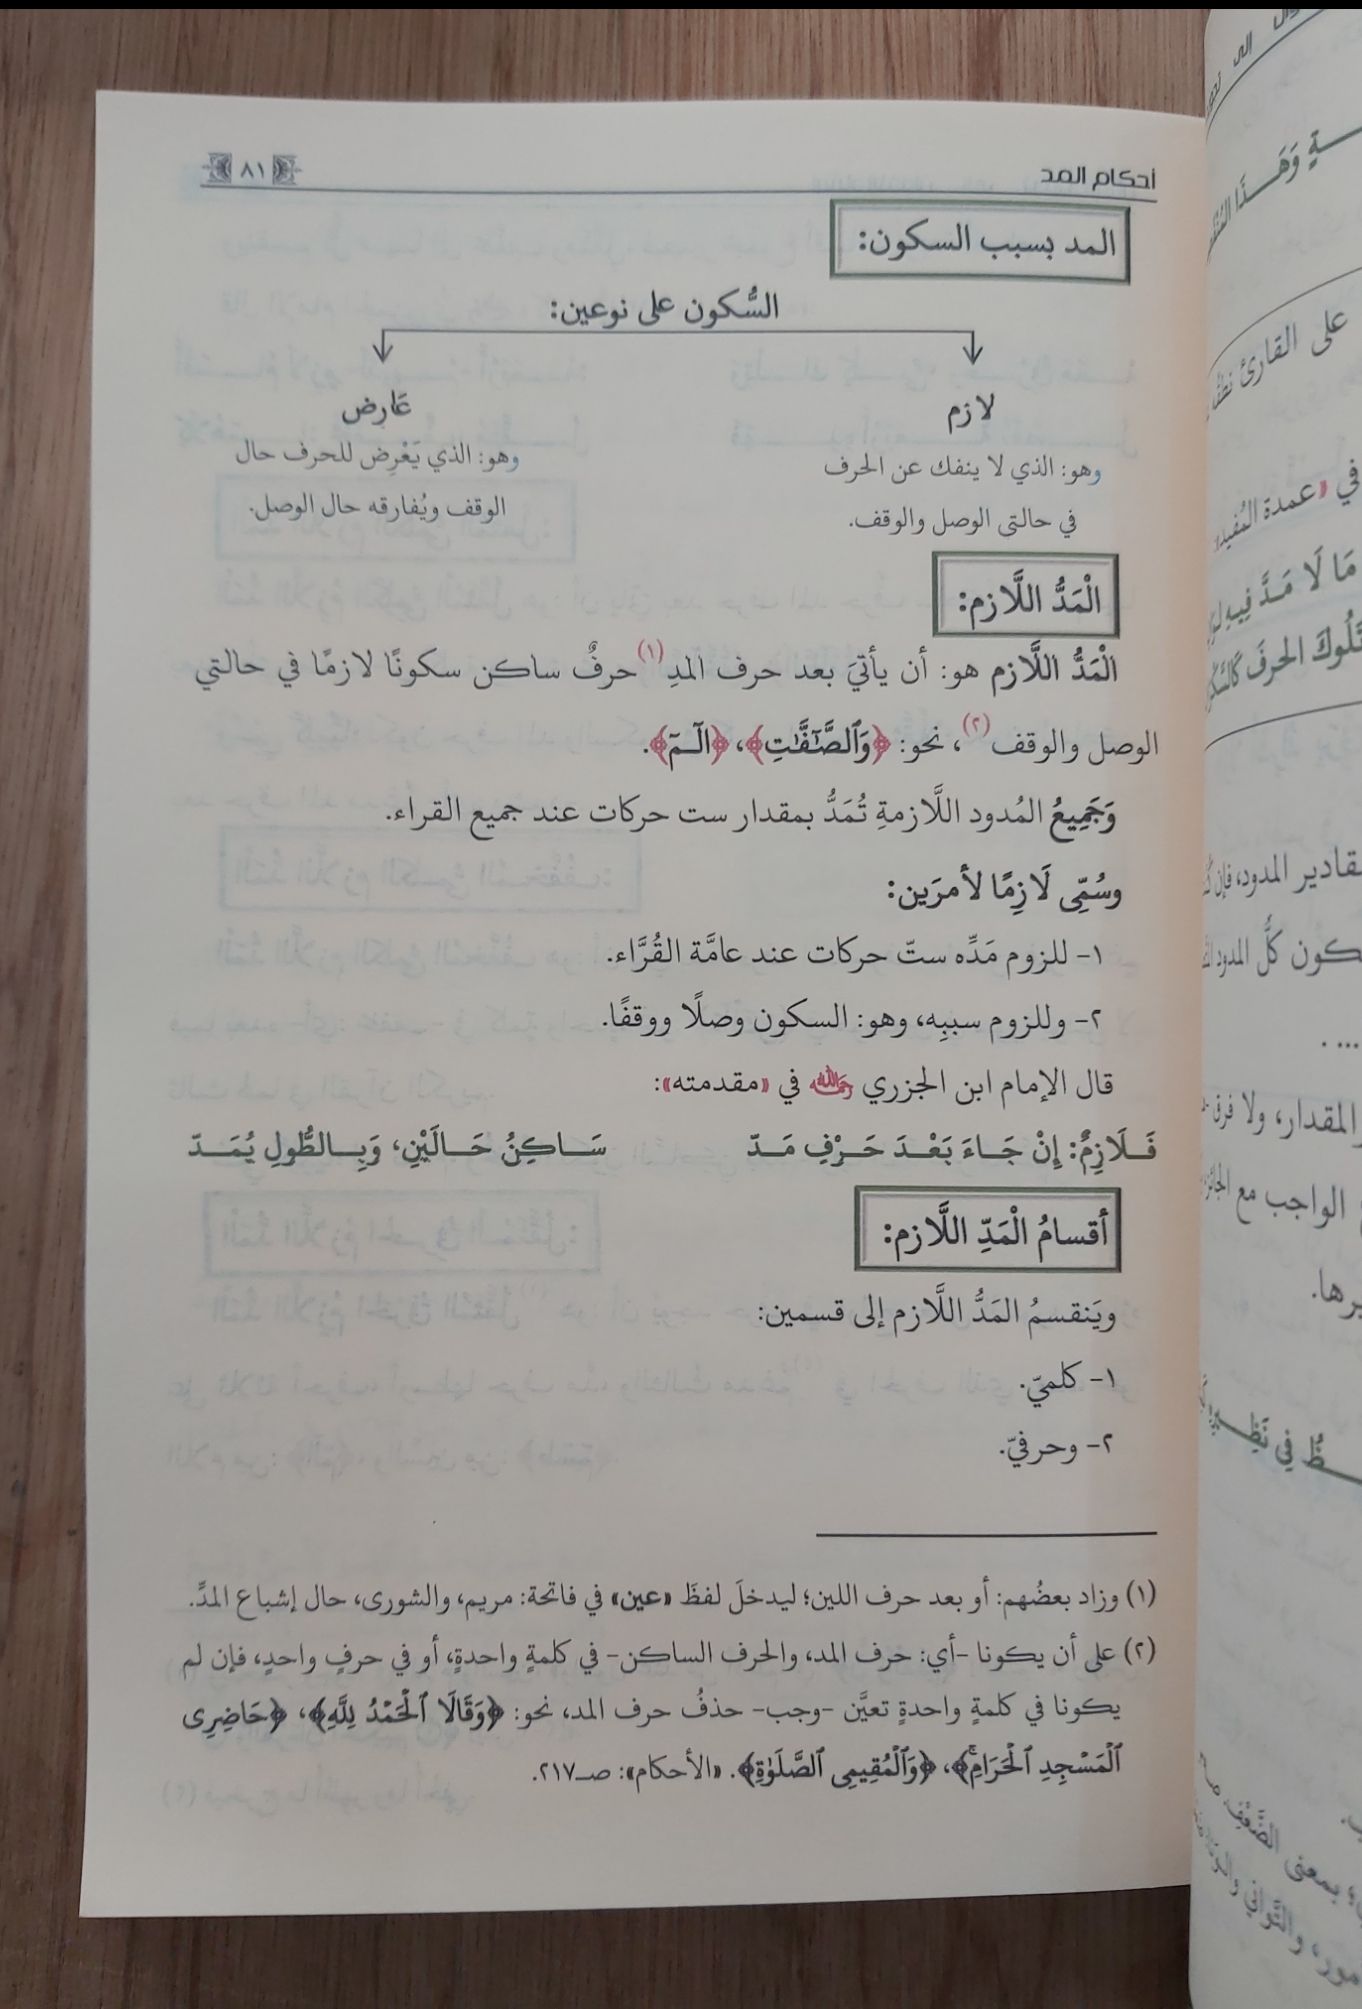 أحكام المد ٨١
المد بسبب السكون:
السُّكون على نوعين:
لازم
وهو: الذي لا ينفك عن الحرف
في حالتي الوصل والوقف.
عَارِض
وهو: الذي يَعْرِض للحرف حال
الوقف ويُفارقه حال الوصل.
الْمَدُّ اللَّازم:
الْمَدُّ اللَّازم هو: أن يأتيَ بعد حرف المدِ(١) حرفٌ ساكن سكونًا لازمًا في حالتي
الوصل والوقف(٢)، نحو: ﴿وَٱلصَّٰٓفَّٰتِ﴾، ﴿الٓمٓ﴾.
وَجَمِيعُ المُدود اللَّازمةِ تُمَدُّ بمقدار ست حركات عند جميع القراء.
وسُمِّى لَازِمًا لأمرَين:
١- للزوم مَدِّه ستّ حركات عند عامَّة القُرَّاء.
٢- وللزوم سببِه، وهو: السكون وصلًا ووقفًا.
قال الإمام ابن الجزري رحمه الله في «مقدمته»:
فَـلَازِمٌ: إِنْ جَـاءَ بَعْـدَ حَـرْفِ مَـدّ سَـاكِنُ حَـالَيْنِ، وَبِـالطُّولِ يُمَـدّ
أقسامُ الْمَدِّ اللَّازم:
ويَنقسمُ المَدُّ اللَّازم إلى قسمين:
١- كلميّ.
٢- وحرفيّ.
(١) وزاد بعضُهم: أو بعد حرف اللين؛ ليدخلَ لفظَ «عين» في فاتحة: مريم، والشورى، حال إشباع المدِّ.
(٢) على أن يكونا -أي: حرف المد، والحرف الساكن- في كلمةٍ واحدةٍ، أو في حرفٍ واحدٍ، فإن لم
يكونا في كلمةٍ واحدةٍ تعيَّن -وجب- حذفُ حرف المد، نحو: ﴿وَقَالَا ٱلْحَمْدُ لِلَّهِ﴾، ﴿حَاضِرِى
ٱلْمَسْجِدِ ٱلْحَرَامِۚ﴾، ﴿وَٱلْمُقِيمِى ٱلصَّلَوٰةِ﴾. «الأحكام»: صـ٢١٧.
على القارئ
في «عمدة المُفيد
مَا لَا مَـدَّ فِيهِ
قادير المدود، فإن
كون كلُّ المدود
المقدار، ولا فرق
الواجب مع الجائز
يرها.
ـظُ فِي نَظِـيرِهِ
بمعنى الضَّعْفِ